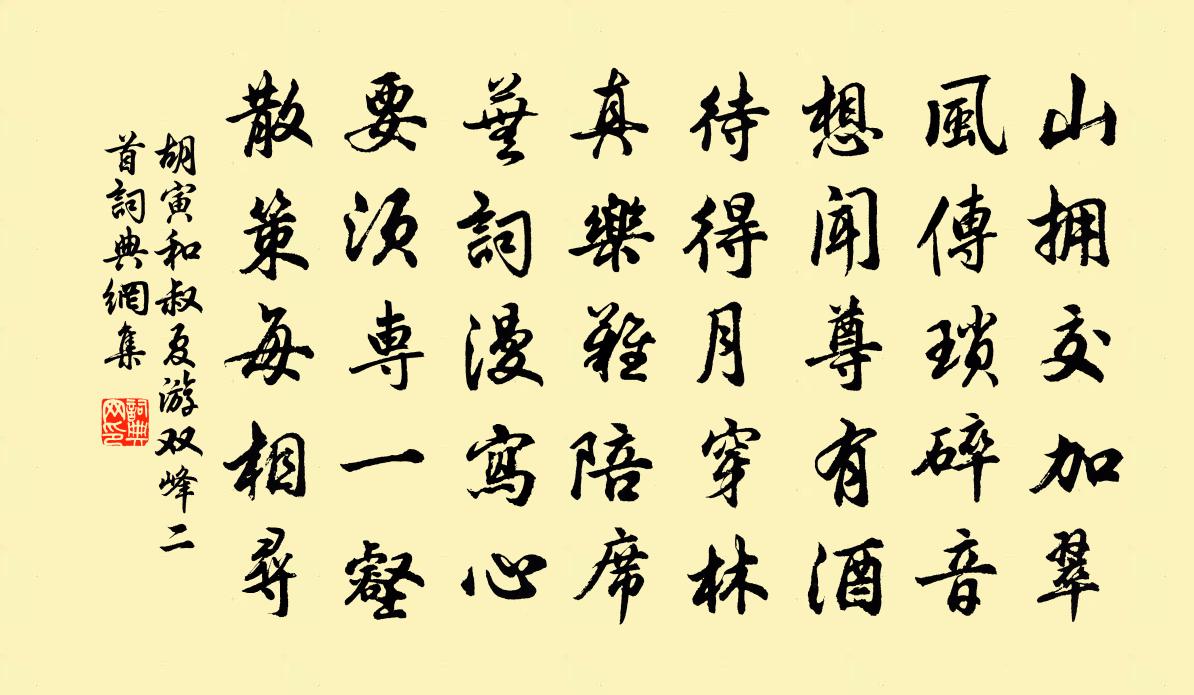 山拥交加翠
風傳瑣碎音
想聞尊有酒
待得月穿林
真樂難陪席
蕪詞漫寫心
要須專一壑
散策每相尋
胡寅和叔夏游双峰二
首詞典網集
詞典
网印